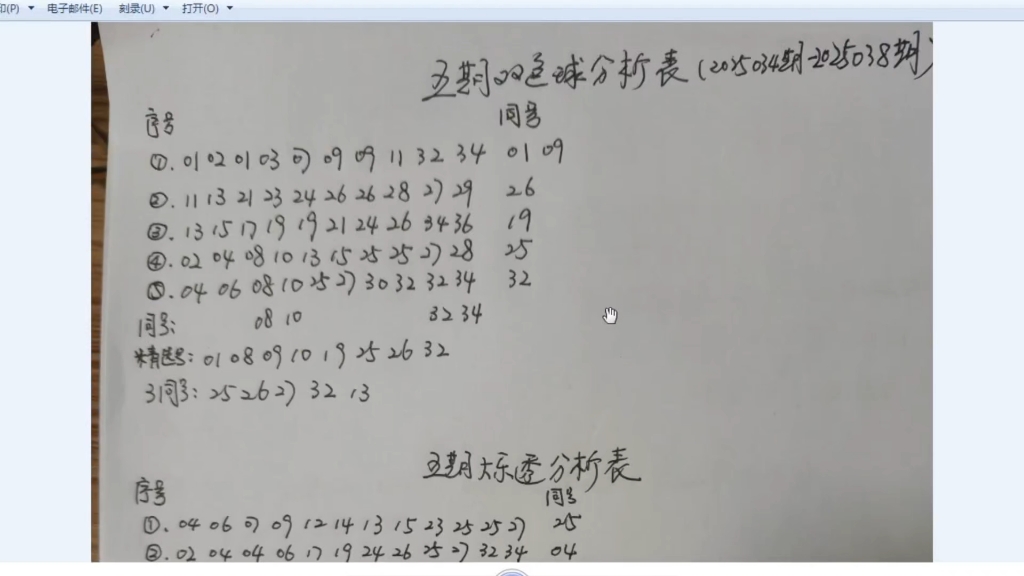 印(P) 电子邮件(E) 刻录(U) 打开(O)
五期双色球分析表(2025034期-2025038期)
序号 同号
①. 01 02 01 03 07 09 09 11 32 34 01 09
②. 11 13 21 23 24 26 26 28 27 29 26
③. 13 15 17 19 19 21 24 26 34 36 19
④. 02 04 08 10 13 15 25 25 27 28 25
⑤. 04 06 08 10 25 27 30 32 32 34 32
同号: 08 10 32 34
精选号: 01 08 09 10 19 25 26 32
31同号: 25 26 27 32 13
五期大乐透分析表
序号 同号
①. 04 06 07 09 12 14 13 15 23 25 25 27 25
②. 02 04 04 06 17 19 24 26 25 27 32 34 04